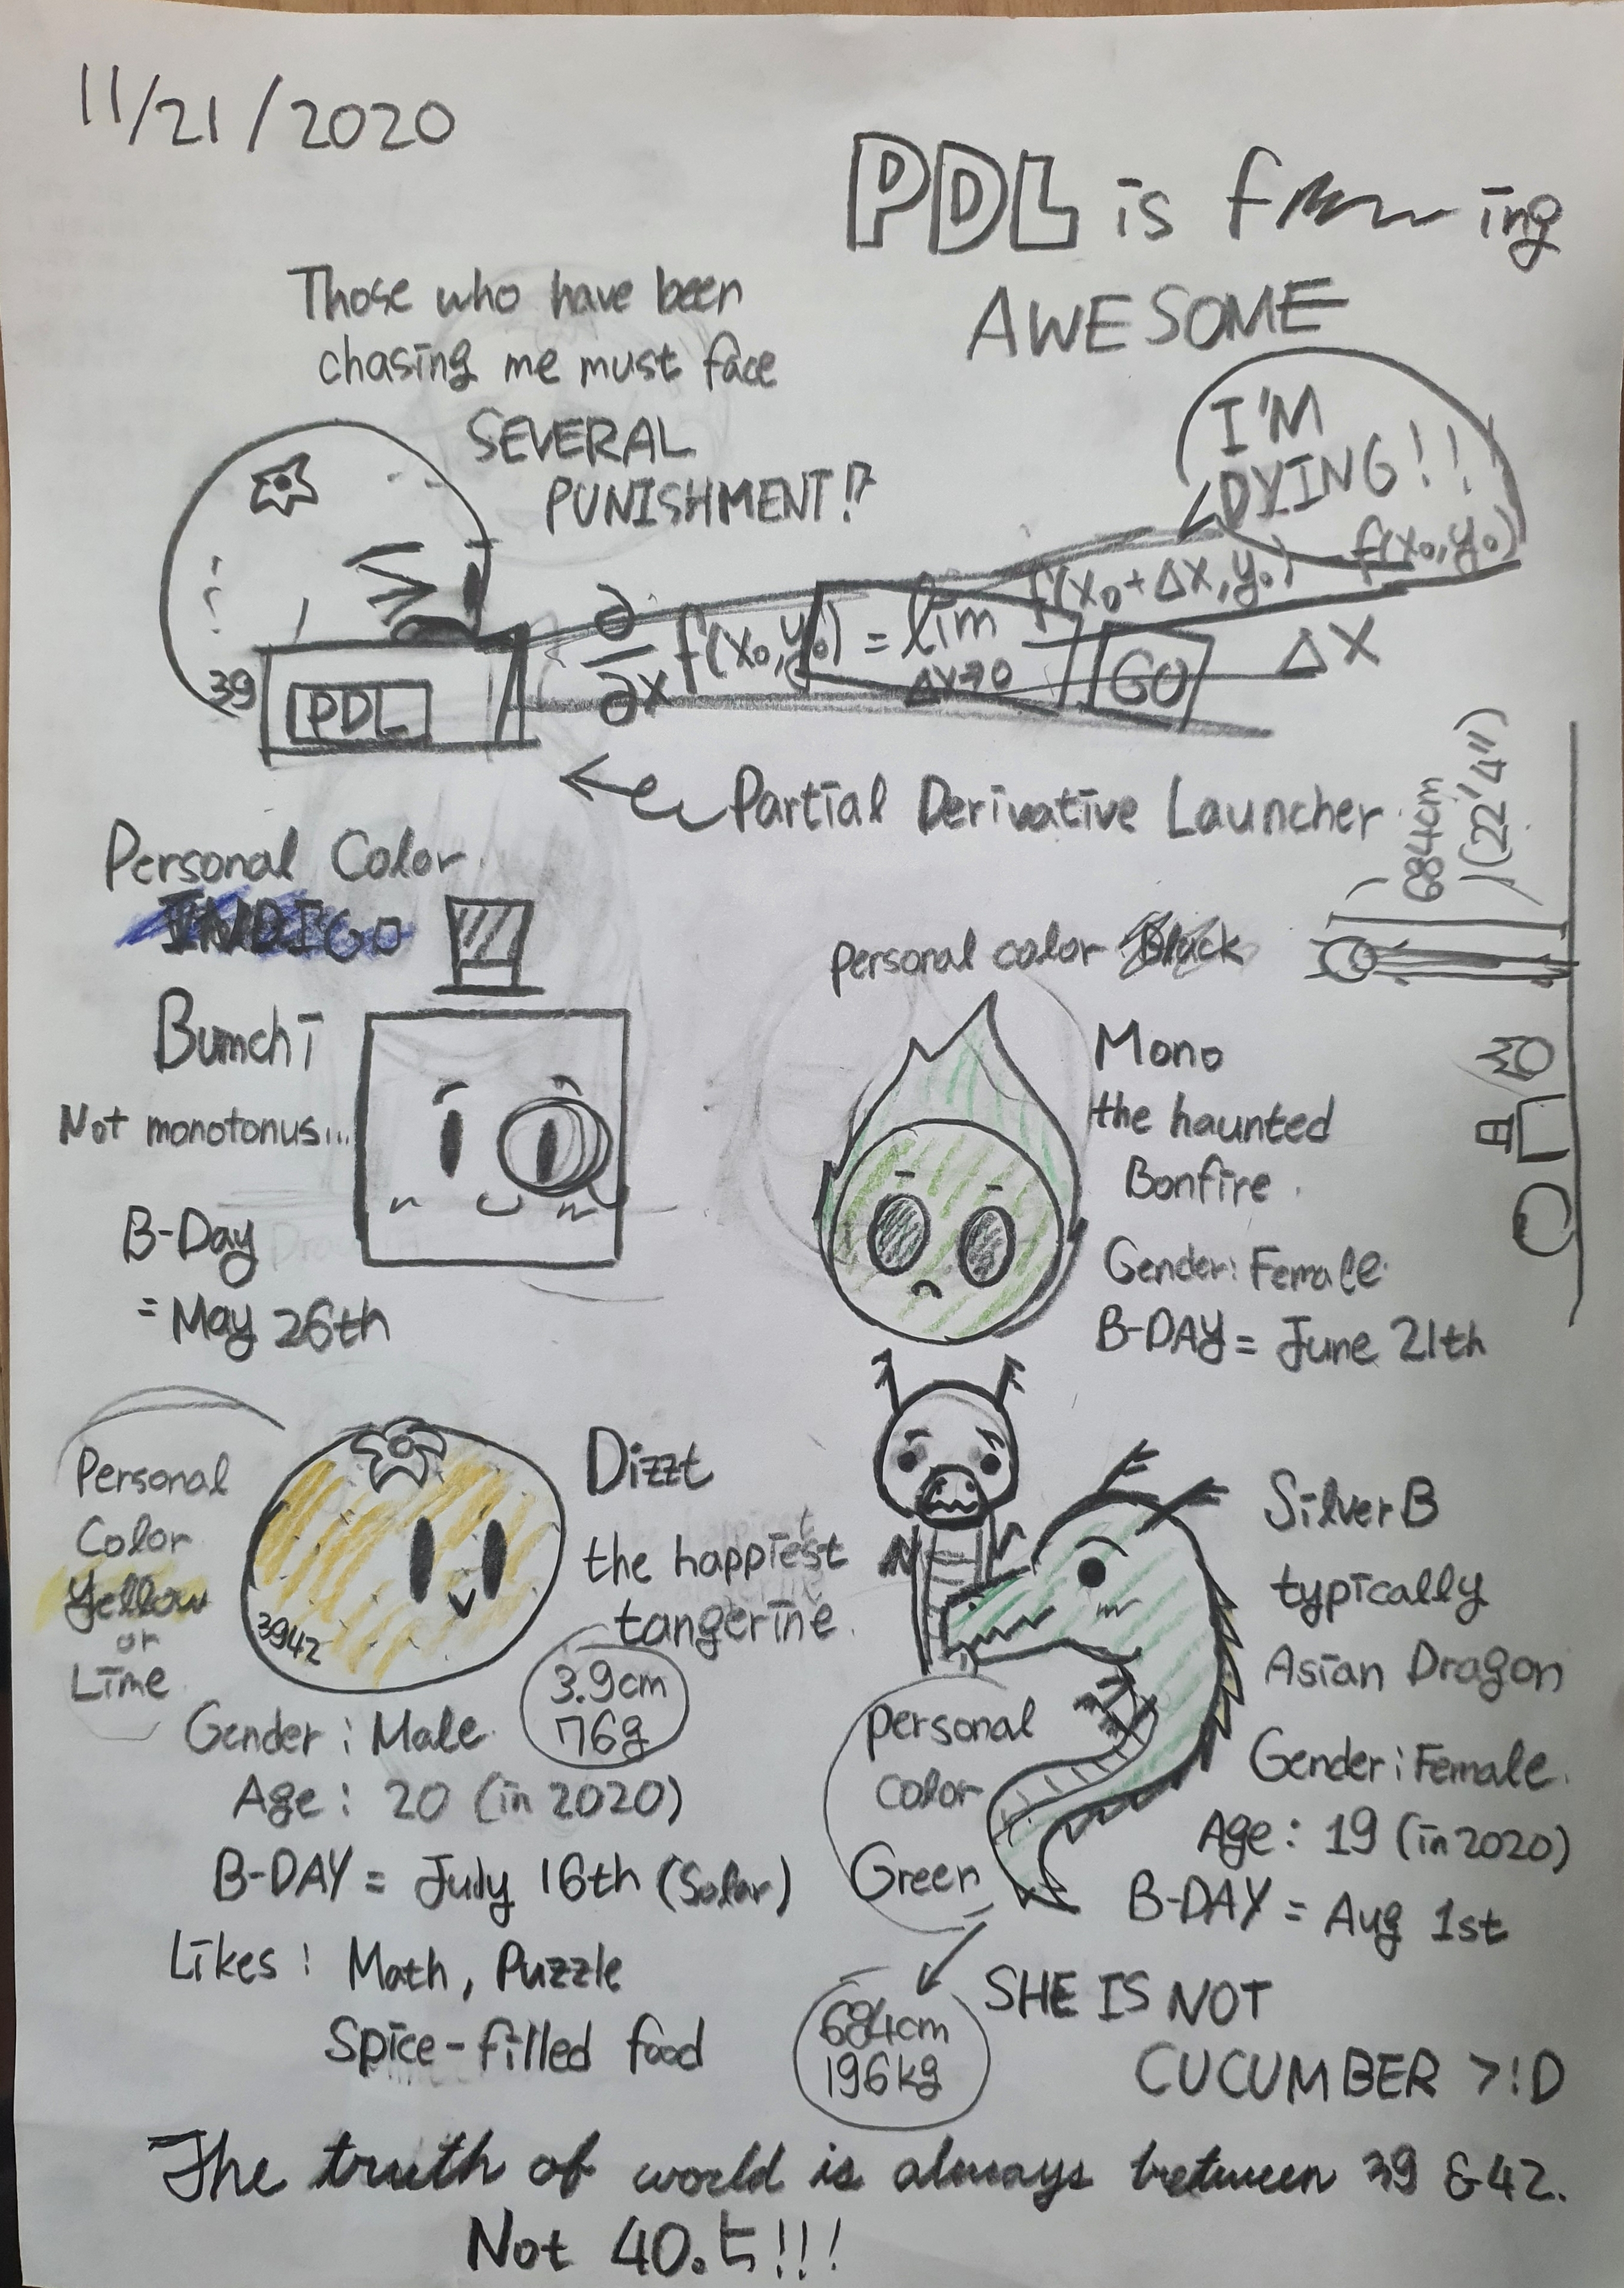 11/21/2020
PDL is f ing
AWESOME
Those who have been
chasing me must face
SEVERAL
PUNISHMENT!?
I'M
DYING!!
∂/∂x f(x₀,y₀) = lim Δx→0 f(x₀+Δx,y₀) f(x₀,y₀) / Δx
39
PDL
GO
Partial Derivative Launcher
684cm
(22'4")
Personal Color
INDIGO
Bumchi
Not monotonus...
B-Day
= May 26th
personal color Black
Mono
the haunted
Bonfire.
Gender: Female.
B-DAY = June 21th
Personal
Color
Yellow
or
Lime
3942
Dizzt
the happiest
tangerine.
3.9cm
76g
Gender: Male.
Age: 20 (in 2020)
B-DAY = July 16th (Solar)
Likes: Math, Puzzle
Spice-filled food
SilverB
typically
Asian Dragon
Personal
Color
Green
Gender: Female.
Age: 19 (in 2020)
B-DAY = Aug 1st
684cm
196kg
SHE IS NOT
CUCUMBER >:D
The truth of world is always between 39 & 42.
Not 40.5!!!